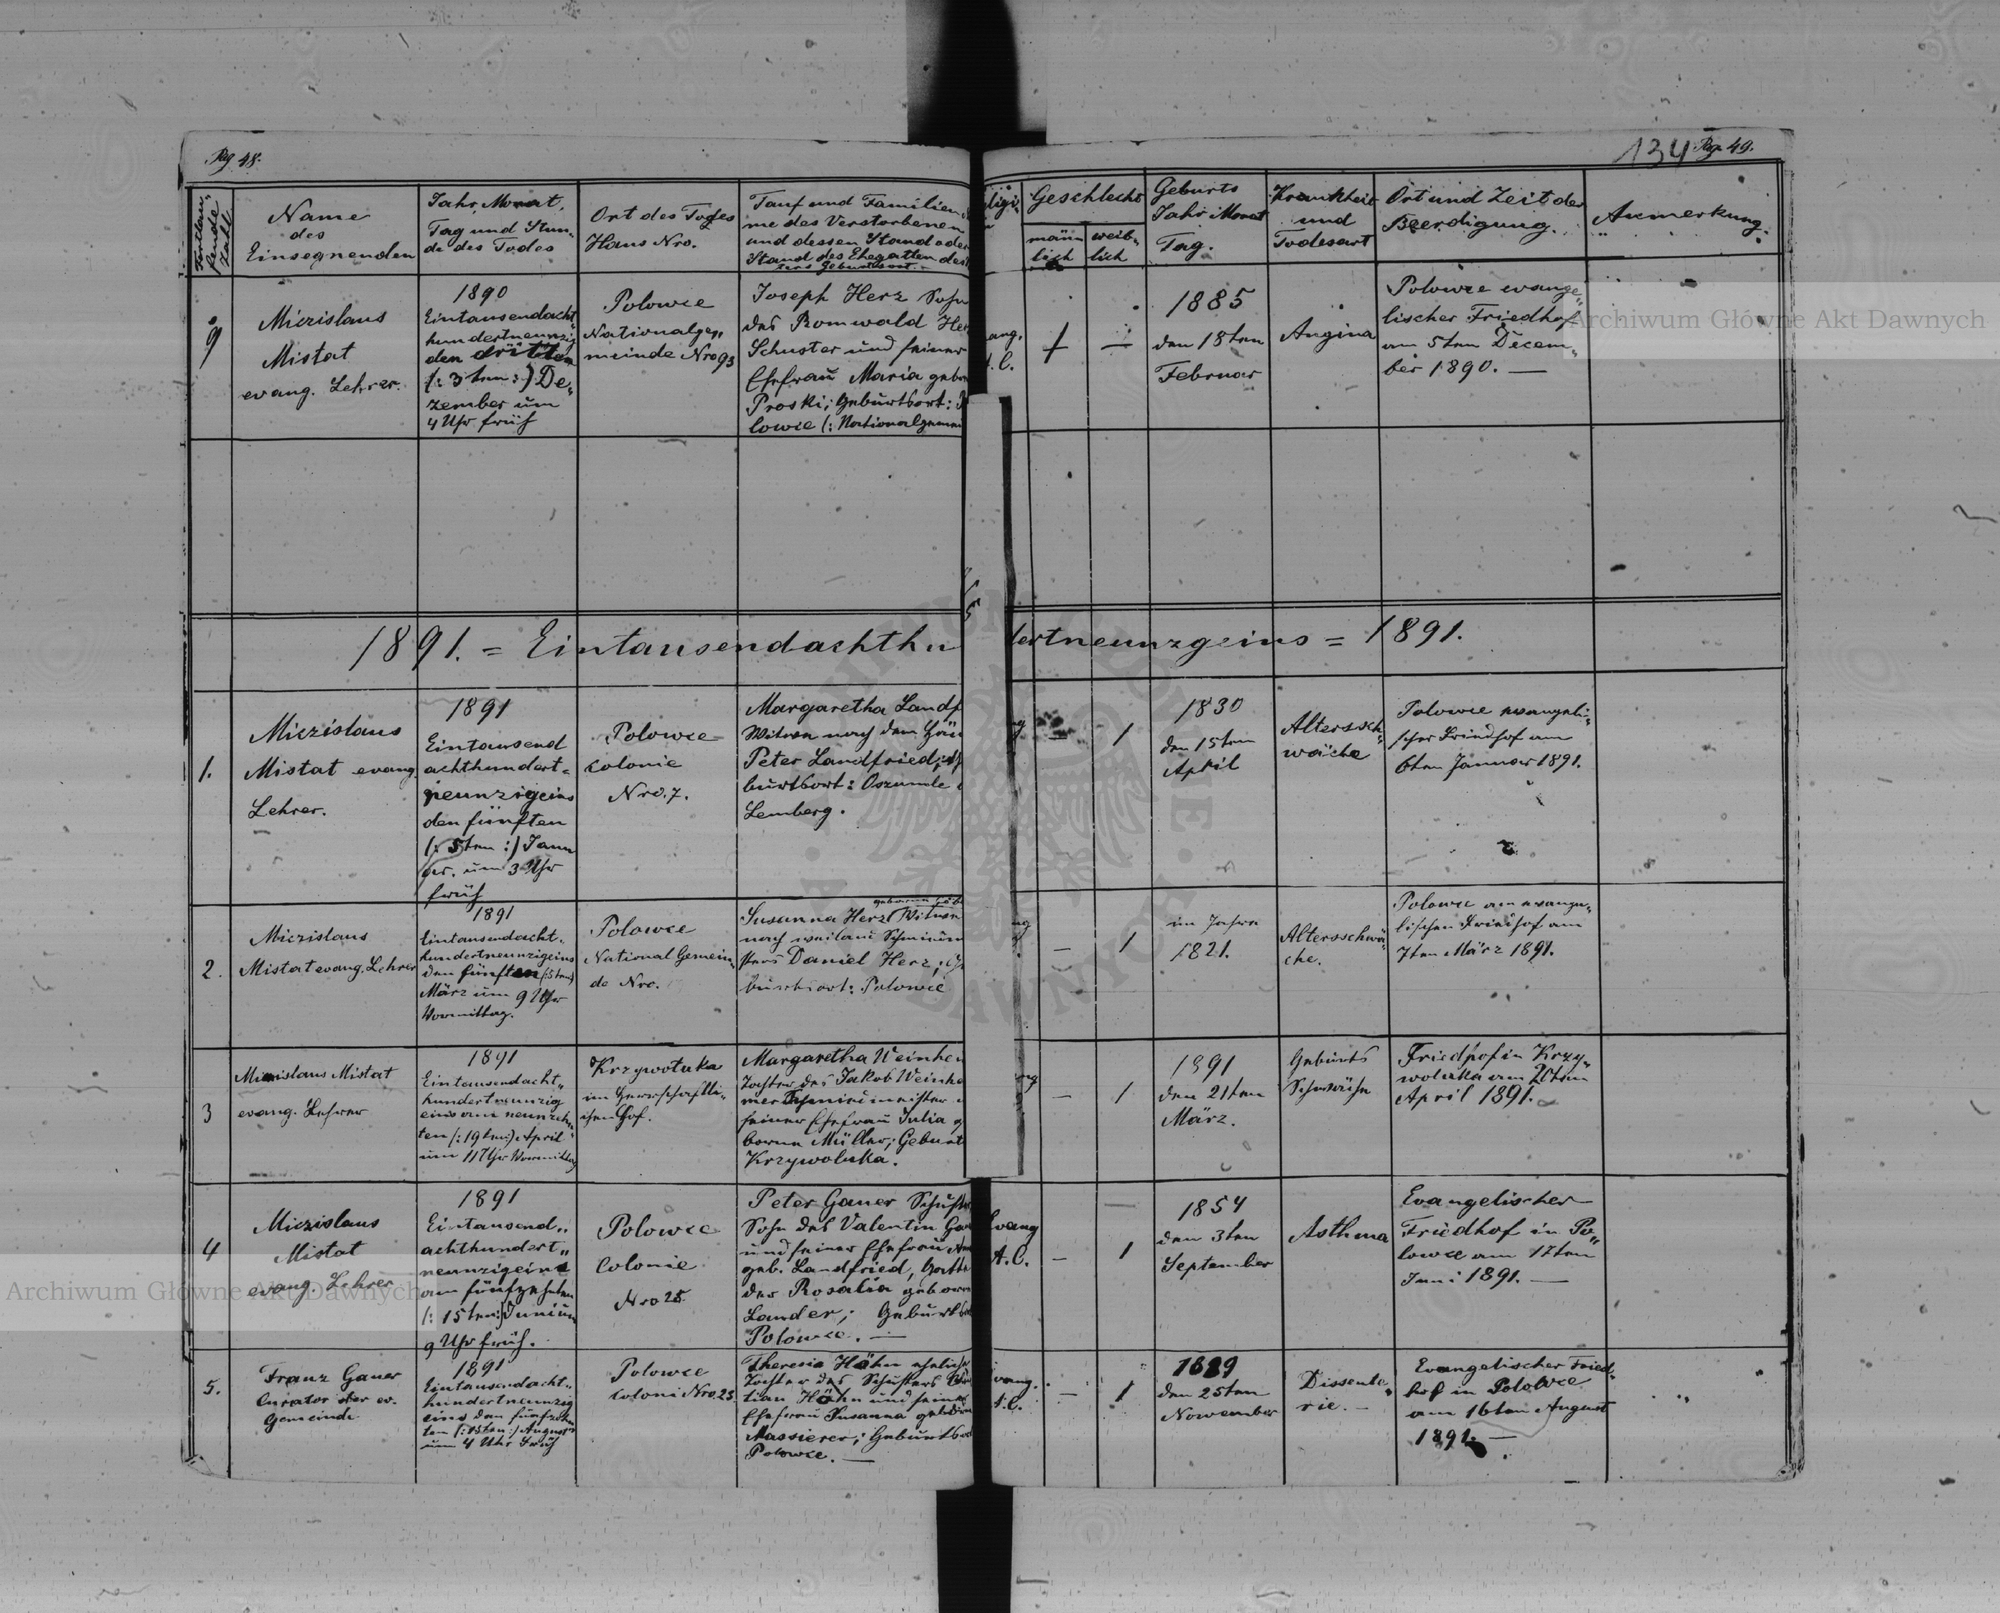 Pag 48.
134 Pag. 49.
Fortlau-
fende
Zahl
Name
des
Einsegnenden
Jahr, Monat,
Tag und Stun-
de des Todes
Ort des Todes
Haus Nro.
Tauf und Familien
me des Verstorbenen
und dessen Stand oder
Stand des Ehegatten des
Geburtsort.
ligi-
Geschlecht
männ
lich
weib-
lich
Geburts
Jahr Monat
Tag.
Krankheit
und
Todesart
Ort und Zeit der
Beerdigung.
Anmerkung.
9
Miezislaus
Mistat
evang. Lehrer.
1890
Eintausendacht-
hundertneunzig
den dritten
(: 3ten :) De-
zember um
4 Uhr früh
Polowce
Nationalge-
meinde Nro 93
Joseph Herz Sohn
des Romwald Her
Schuster und seiner
Ehefrau Maria gebor
Proski; Geburtsort: P
lowce (: Nationalgemei
ang.
A. C.
1
—
1885
den 18ten
Februar
Angina
Polowce evange-
lischer Friedhof
am 5ten Decem-
ber 1890. —
1891. = Eintausendachthu
dertneunzgeins = 1891.
1.
Miezislaus
Mistat evang.
Lehrer.
1891
Eintausend
achthundert-
neunzigeins
den fünften
(: 5ten :) Jann
er. um 3 Uhr
früh
Polowce
Colonie
Nro. 7.
Margaretha Landf
Witwe nach dem
Peter Landfried;
burtsort: Oszumle
Lemberg.
g
—
1
1830
den 15ten
April
Alterssch-
wäche
Polowce evangeli-
scher Friedhof am
6ten Januar 1891.
2.
Miezislaus
Mistat evang. Lehrer
1891
Eintausendacht-
hundertneunzigeins
den fünften (: 5ten)
März um 9 Uhr
Vormittag.
Polowce
National Gemein-
de Nro.
Susanna Herz Witwe
nach weiland
sters Daniel Herz;
burtsort: Polowce
—
1
im Jahre
1821.
Altersschwä-
che.
Polowce am evange-
lischen Friedhof am
7ten März 1891.
3
Miezislaus Mistat
evang. Lehrer
1891
Eintausendacht-
hundertneunzig
eins am neunzehn
ten (: 19ten:) April
um 11 Uhr Vormittag
Krzywoluka
im Herrschaftli-
chen Hof.
Margaretha Weinhe
Tochter des Jakob Weinhe
mer Schmiedmeister
seiner Ehefrau Julia g
borne Müller; Geburt
Krzywoluka.
ng
—
1
1891
den 21ten
März.
Geburts
Schwäche
Friedhof in Krzy-
woluka am 20ten
April 1891.
4
Miezislaus
Mistat
evang. Lehrer
1891
Eintausend-
achthundert-
neunzigeins
am fünfzehnten
(: 15ten:) Juni um
9 Uhr früh.
Polowce
Colonie
Nro 25
Peter Ganer Schuster
Sohn des Valentin Ga
und seiner Ehefrau
geb. Landfried, Gatte
der Rosalia gebor
Lander; Geburtso
Polowce. —
Evang
A. C.
—
1
1854
den 3ten
September
Asthma
Evangelischer
Friedhof in Po-
lowce am 17ten
Juni 1891. —
5.
Franz Ganer
Curator der ev.
Gemeinde
1891
Eintausendacht-
hundertneunzig
eins den fünfzehn
ten (: 15ten :) August
um 4 Uhr früh
Polowce
Coloni Nro. 23
Theresia Höhn eheliche
Tochter des Schusters
tian Höhn und seiner
Ehefrau Susanna gebor
Massierer; Geburtso
Polowce. —
Evang.
A. C.
—
1
1889
den 25ten
November
Dissente-
rie. —
Evangelischer Fried-
hof in Polowce
am 16ten August
1891. —
Archiwum Główne Akt Dawnych
Archiwum Główne Akt Dawnych
ARCHIWUM GŁÓWNE AKT DAWNYCH